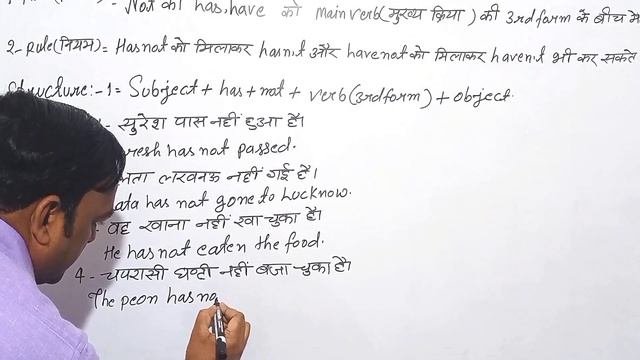 Not को has, have को main verb (मुख्य क्रिया) की 3rd form के बीच में
2- Rule (नियम) = Has not को मिलाकर hasn't और have not को मिलाकर haven't भी कर सकते
Structure:-1= Subject + has + not + verb (3rd form) + object.
सुरेश पास नहीं हुआ है।
resh has not passed.
लता लखनऊ नहीं गई है।
ata has not gone to Lucknow.
वह खाना नहीं खा चुका है।
He has not eaten the food.
4- चपरासी घण्टी नहीं बजा चुका है।
The peon has no